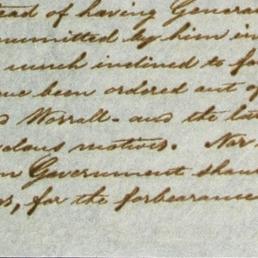 tead of having Genera
ommitted by him in
much inclined to fa
ve been ordered out of
d Worrall - and the lat
ulous motives. Nor
n Government shou
rs, for the forbearance